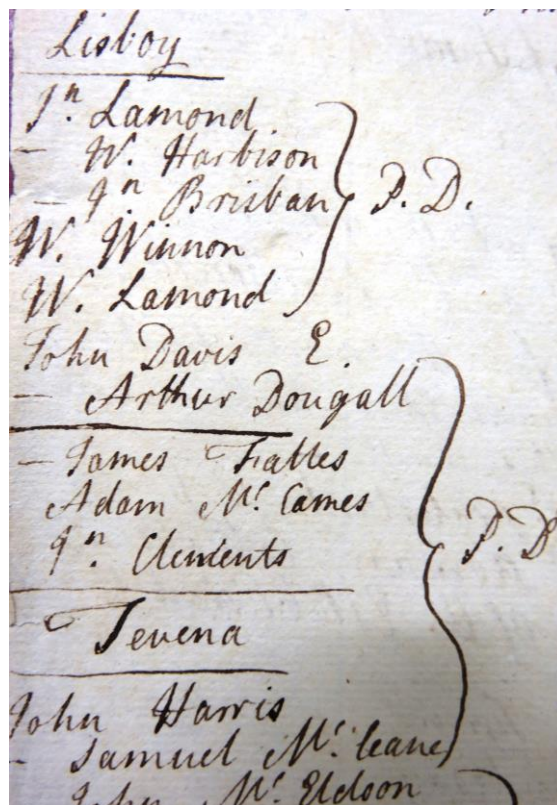 Lisboy
Jn. Lamond
- W. Harbison
- Jn Brisban P. D.
W. Winnon
W. Lamond
John Davis E.
- Arthur Dougall
- James Falles
Adam Mc. Cames
Jn. Clements P. D
Tevena
John Harris
- Samuel Mc. Cane
John Mc. Eldson